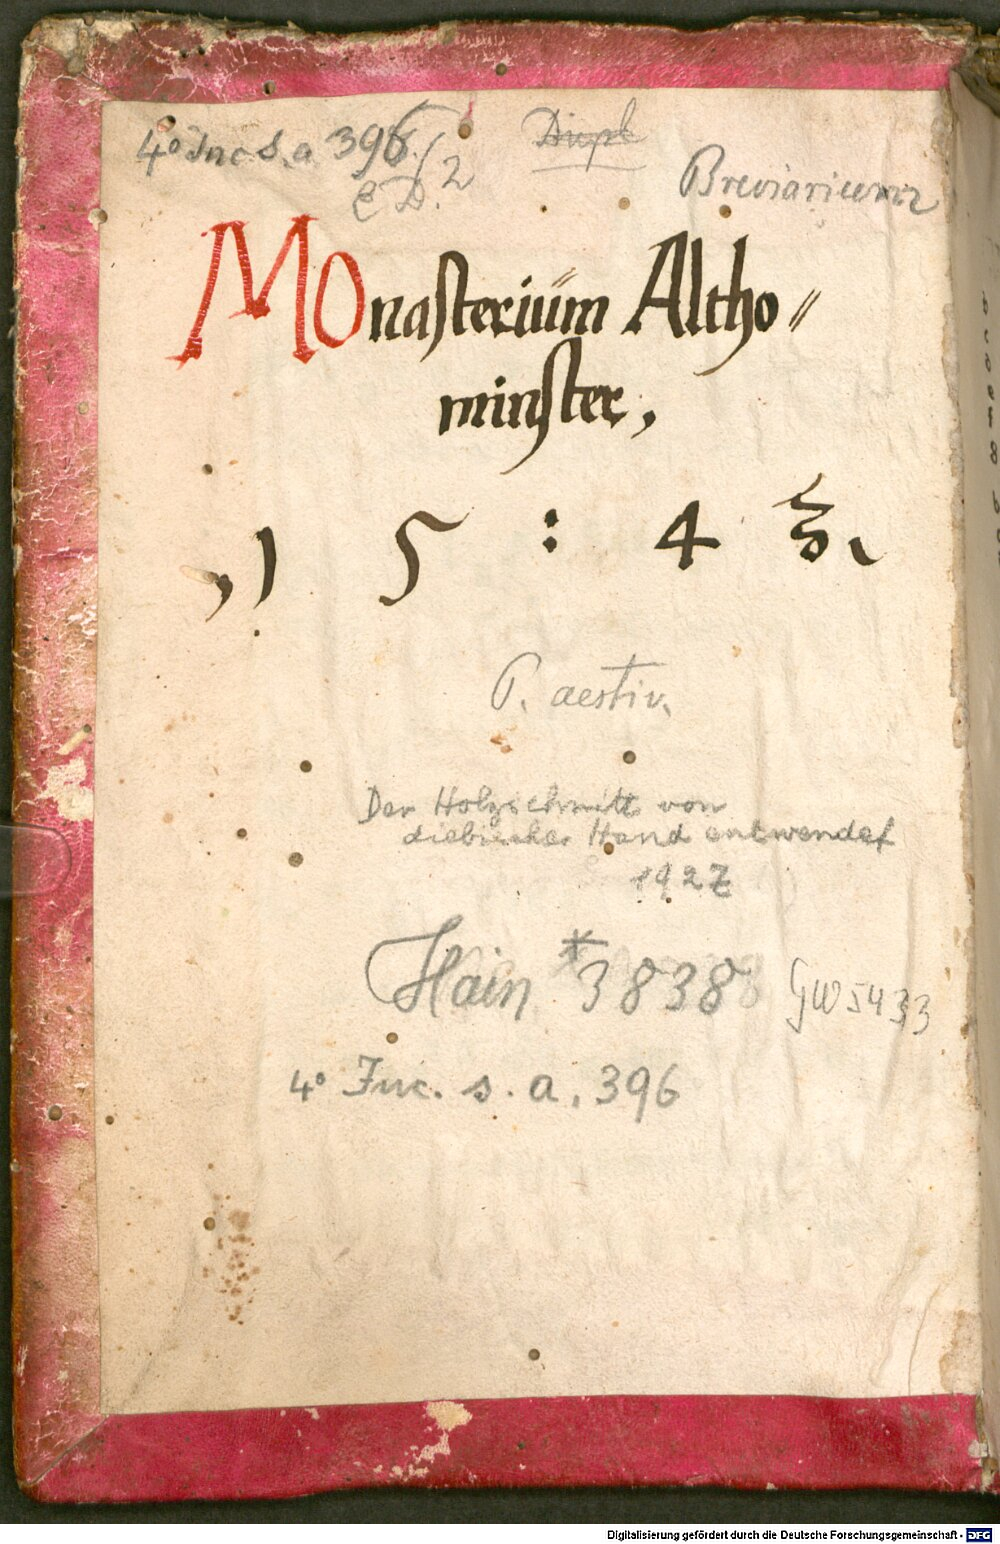 4° Inc. s. a. 396/2
Dupl
E D.
Breviarium
MOnasteriüm Altho〃
minster,
,1 5 : 4 3.
P. aestiv.
Der Holzschnitt von
diebischer Hand entwendet
1927
Hain *3838
GW 5433
4° Inc. s. a. 396
Digitalisierung gefördert durch die Deutsche Forschungsgemeinschaft - DFG